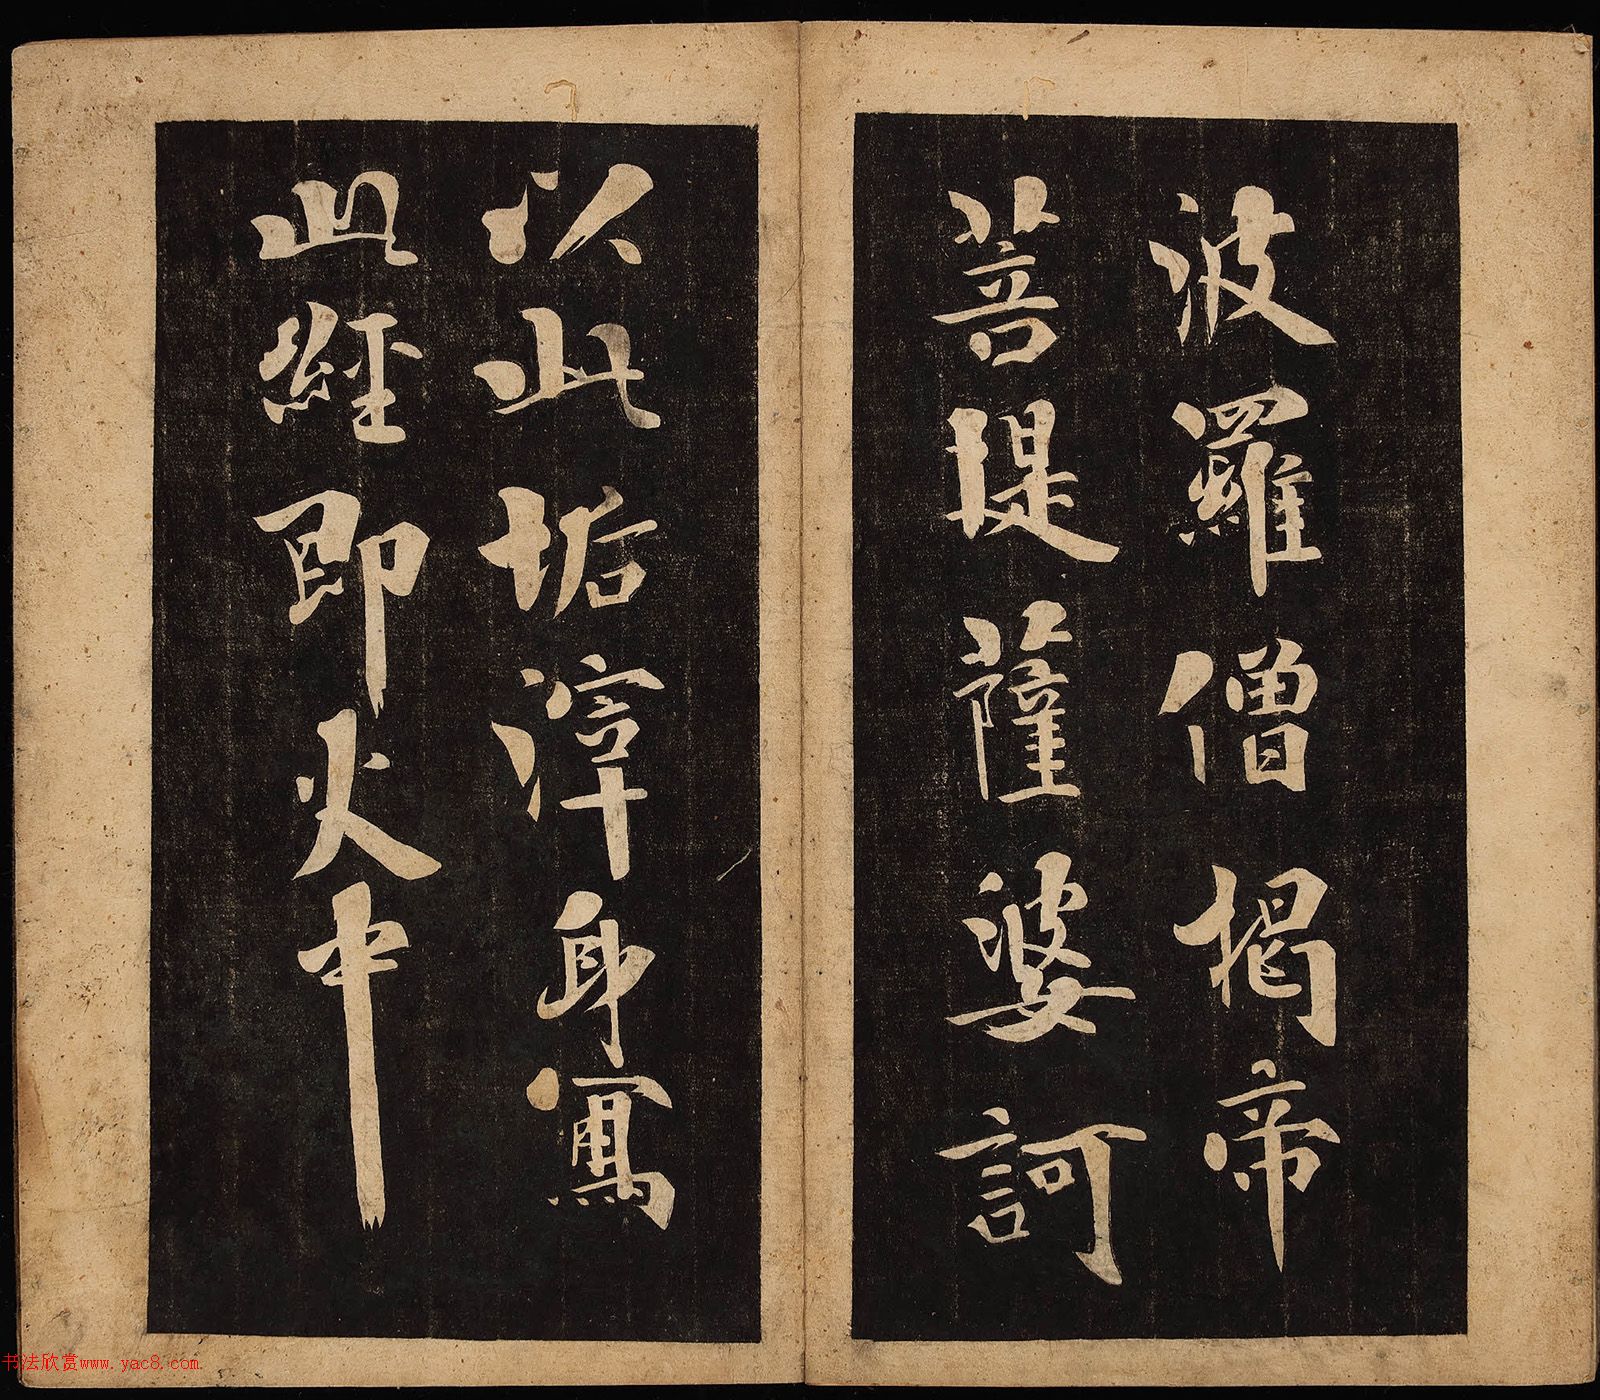 波羅僧揭帝
菩提薩婆訶
以此垢滓身寫
此經即火中
书法欣赏www.yac8.com.